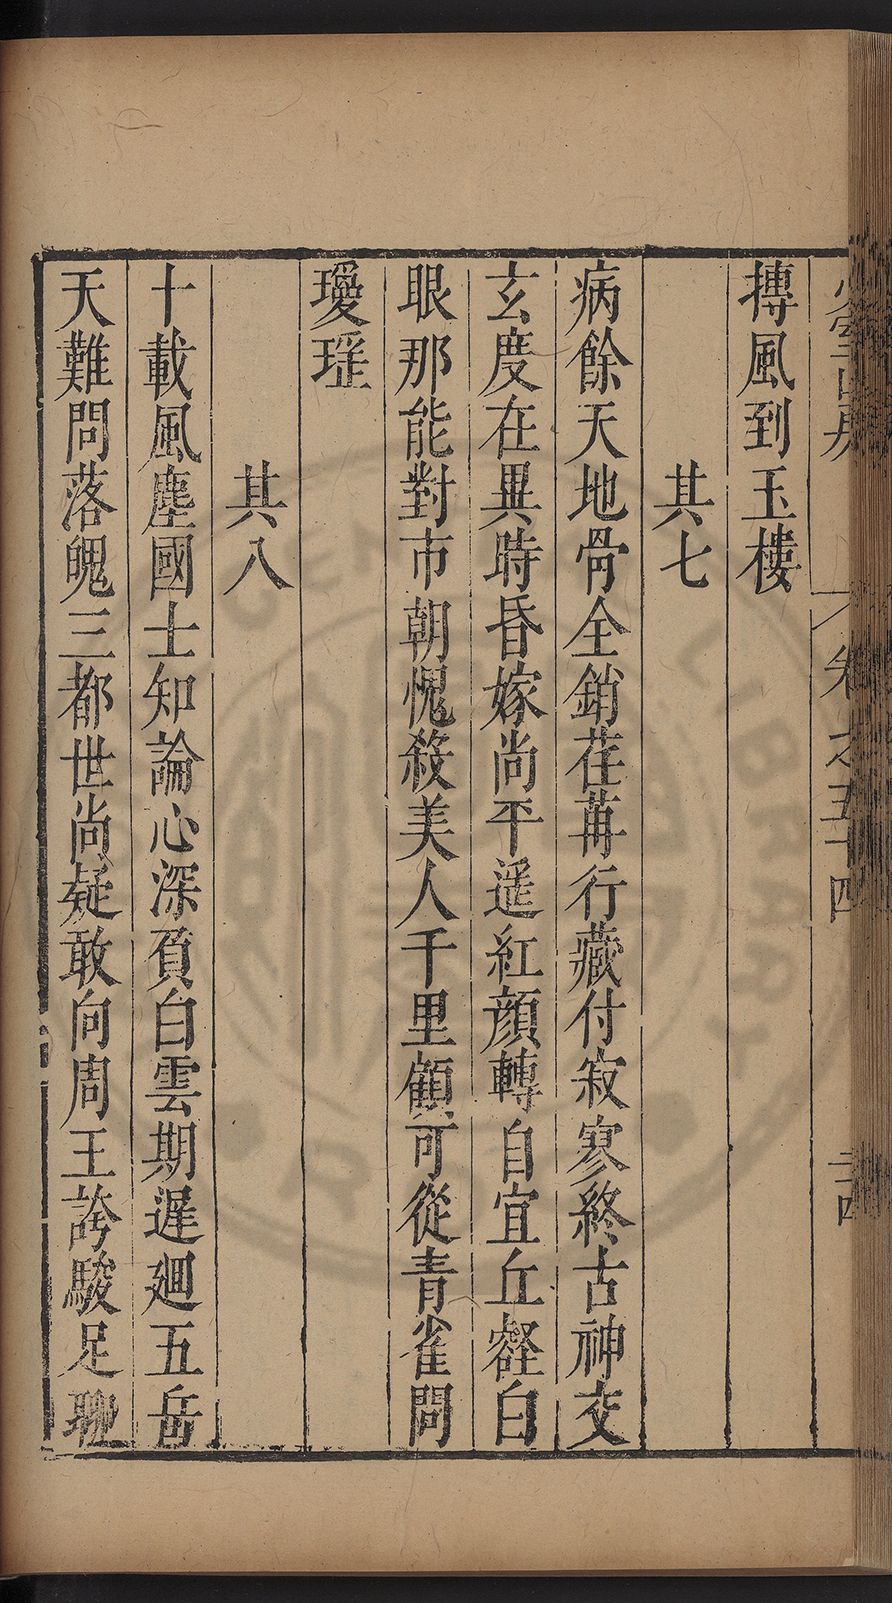 少室山房
卷之五十四
摶風到玉樓
其七
病餘天地骨全銷荏苒行藏付寂寥終古神交
玄度在異時昏嫁尚平遥紅顏轉自宜丘壑白
眼那能對市朝愧殺美人千里顧可從青雀問
瓊瑶
其八
十載風塵國士知論心深負白雲期遲廻五岳
天難問落魄三都世尚疑敢向周王誇駿足聊